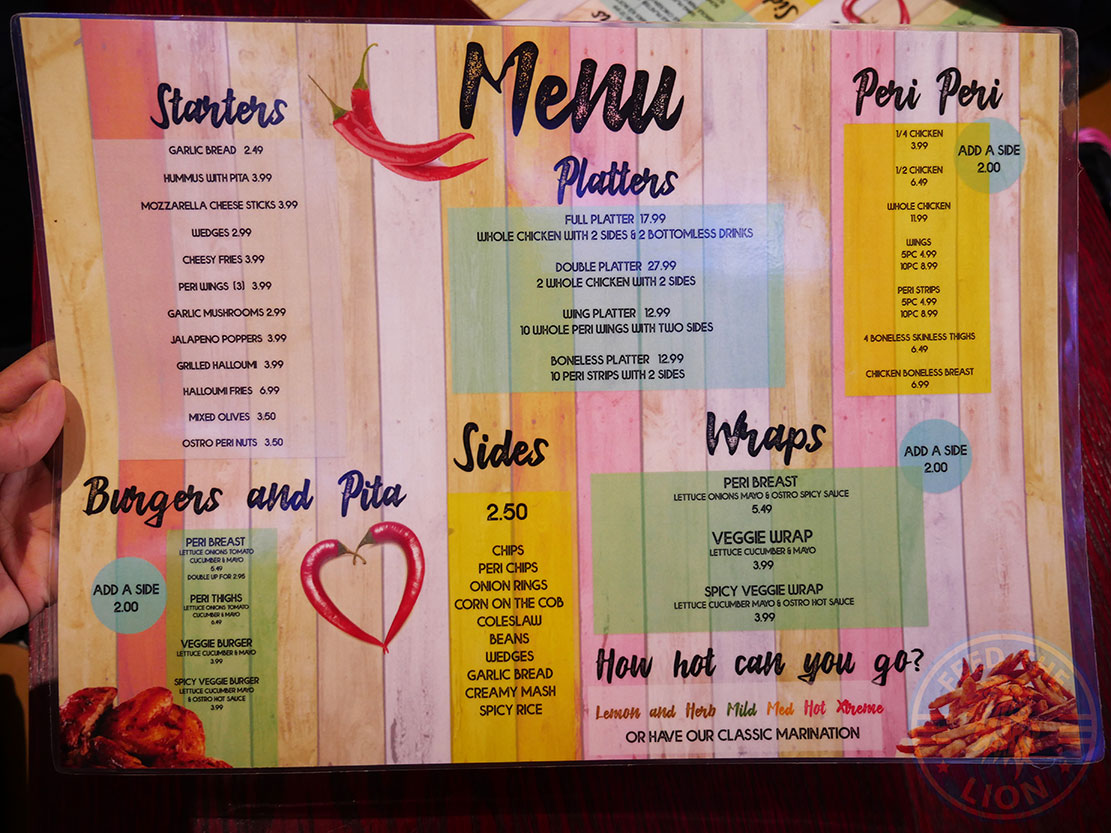 Menu
Starters
GARLIC BREAD 2.49
HUMMUS WITH PITA 3.99
MOZZARELLA CHEESE STICKS 3.99
WEDGES 2.99
CHEESY FRIES 3.99
PERI WINGS (3) 3.99
GARLIC MUSHROOMS 2.99
JALAPENO POPPERS 3.99
GRILLED HALLOUMI 3.99
HALLOUMI FRIES 6.99
MIXED OLIVES 3.50
OSTRO PERI NUTS 3.50
Burgers and Pita
PERI BREAST
LETTUCE ONIONS TOMATO
CUCUMBER & MAYO
5.49
DOUBLE UP FOR 2.95
PERI THIGHS
LETTUCE ONIONS TOMATO
CUCUMBER & MAYO
6.49
VEGGIE BURGER
LETTUCE CUCUMBER & MAYO
3.99
SPICY VEGGIE BURGER
LETTUCE CUCUMBER MAYO
& OSTRO HOT SAUCE
3.99
ADD A SIDE
2.00
Platters
FULL PLATTER 17.99
WHOLE CHICKEN WITH 2 SIDES & 2 BOTTOMLESS DRINKS
DOUBLE PLATTER 27.99
2 WHOLE CHICKEN WITH 2 SIDES
WING PLATTER 12.99
10 WHOLE PERI WINGS WITH TWO SIDES
BONELESS PLATTER 12.99
10 PERI STRIPS WITH 2 SIDES
Sides
2.50
CHIPS
PERI CHIPS
ONION RINGS
CORN ON THE COB
COLESLAW
BEANS
WEDGES
GARLIC BREAD
CREAMY MASH
SPICY RICE
Peri Peri
1/4 CHICKEN
3.99
1/2 CHICKEN
6.49
WHOLE CHICKEN
11.99
WINGS
5PC 4.99
10PC 8.99
PERI STRIPS
5PC 4.99
10PC 8.99
4 BONELESS SKINLESS THIGHS
6.49
CHICKEN BONELESS BREAST
6.99
ADD A SIDE
2.00
Wraps
PERI BREAST
LETTUCE ONIONS MAYO & OSTRO SPICY SAUCE
5.49
VEGGIE WRAP
LETTUCE CUCUMBER & MAYO
3.99
SPICY VEGGIE WRAP
LETTUCE CUCUMBER MAYO & OSTRO HOT SAUCE
3.99
ADD A SIDE
2.00
How hot can you go?
Lemon and Herb Mild Med Hot Xtreme
OR HAVE OUR CLASSIC MARINATION
FEED THE
LION